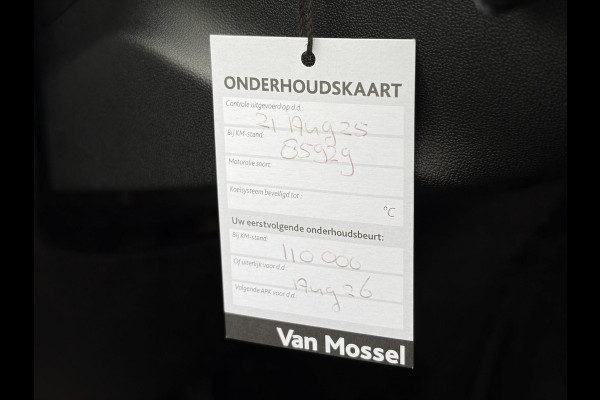 ONDERHOUDSKAART
Controle uitgevoerd op d.d.:
21 Aug 25
Bij KM-stand:
85929
Motorolie soort:
Koelsysteem beveiligd tot:
°C
Uw eerstvolgende onderhoudsbeurt:
Bij KM-stand:
110 000
Of uiterlijk voor d.d.:
Aug 26
Volgende APK voor d.d.:
Van Mossel